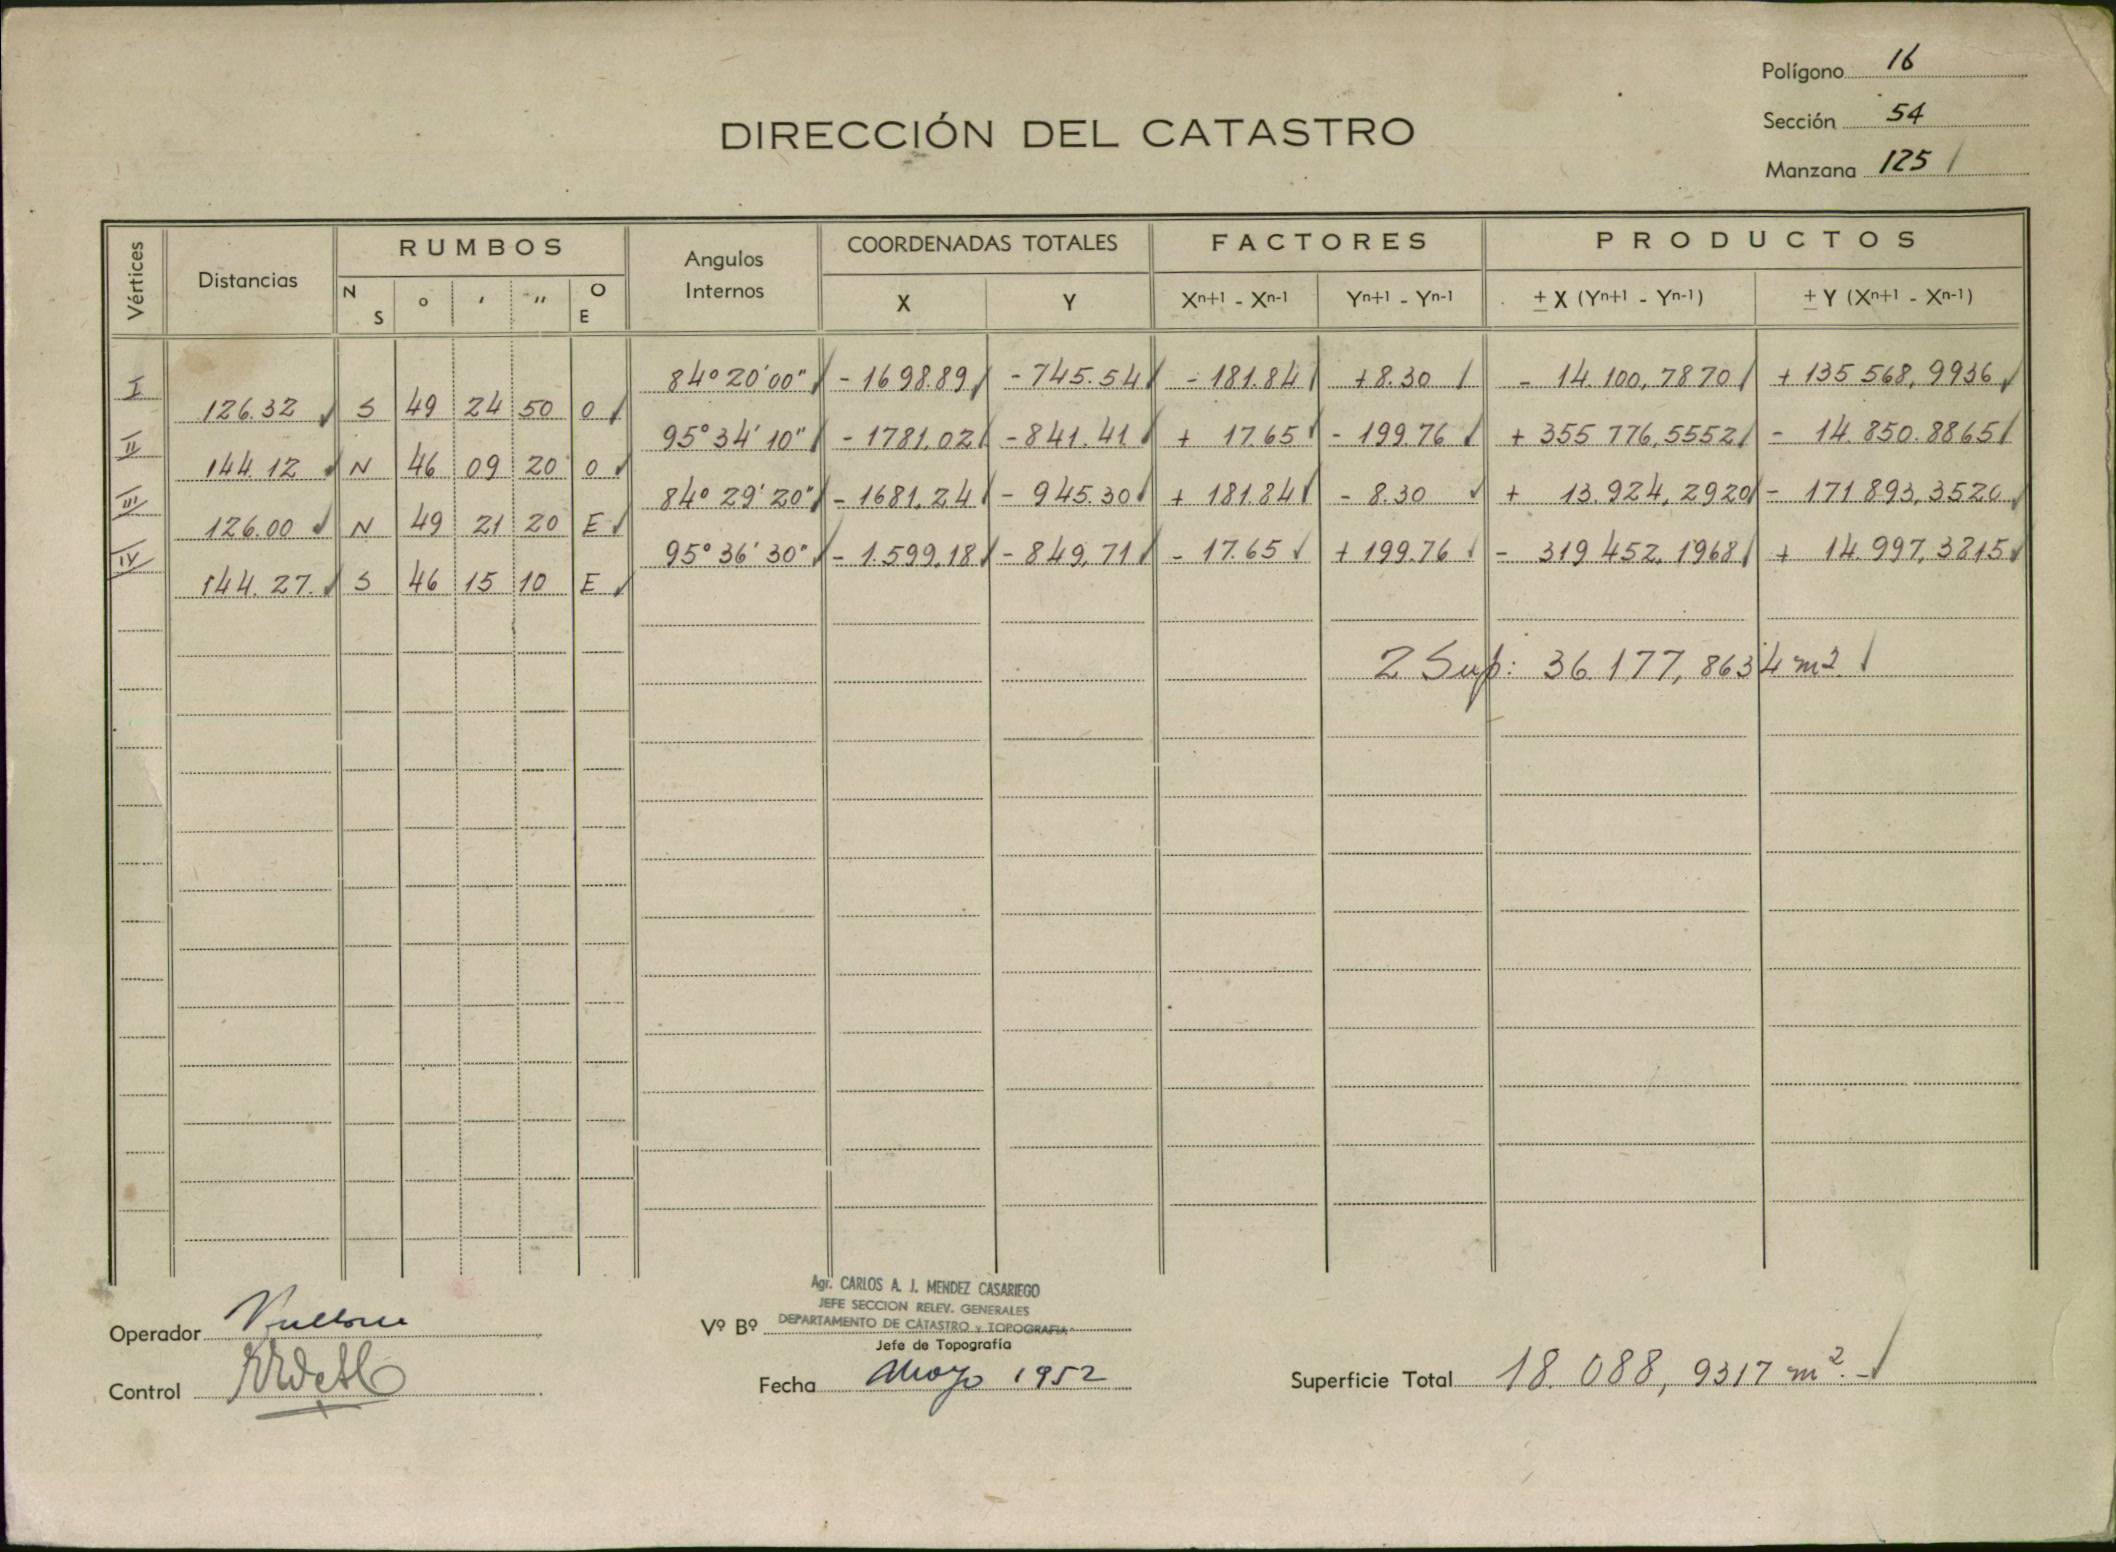 Polígono 16
DIRECCIÓN DEL CATASTRO
Sección 54
Manzana 125
Vértices Distancias RUMBOS Angulos Internos COORDENADAS TOTALES FACTORES PRODUCTOS
N S ° ' '' O E X Y Xn+1 - Xn-1 Yn+1 - Yn-1 ± X (Yn+1 - Yn-1) ± Y (Xn+1 - Xn-1)
I 84° 20' 00" - 1698.89 - 745.54 - 181.84 + 8.30 - 14.100,7870 + 135 568,9936
126.32 S 49 24 50 O
II 95° 34' 10" - 1781,02 - 841.41 + 17.65 - 199.76 + 355 776,5552 - 14.850.8865
144.12 N 46 09 20 O
III 84° 29' 20" - 1681,24 - 945.30 + 181.84 - 8.30 + 13.924,2920 - 171 893,3520
126.00 N 49 21 20 E
IV 95° 36' 30" - 1.599,18 - 849,71 - 17.65 + 199.76 - 319 452,1968 + 14.997,3215
144.27. S 46 15 10 E
2 Sup: 36.177,8634 m2.
Agr. CARLOS A. J. MENDEZ CASARIEGO
JEFE SECCION RELEV. GENERALES
DEPARTAMENTO DE CATASTRO y TOPOGRAFIA
Operador
Vº Bº
Jefe de Topografía
Control
Fecha Mayo 1952
Superficie Total 18.088,9317 m2.-